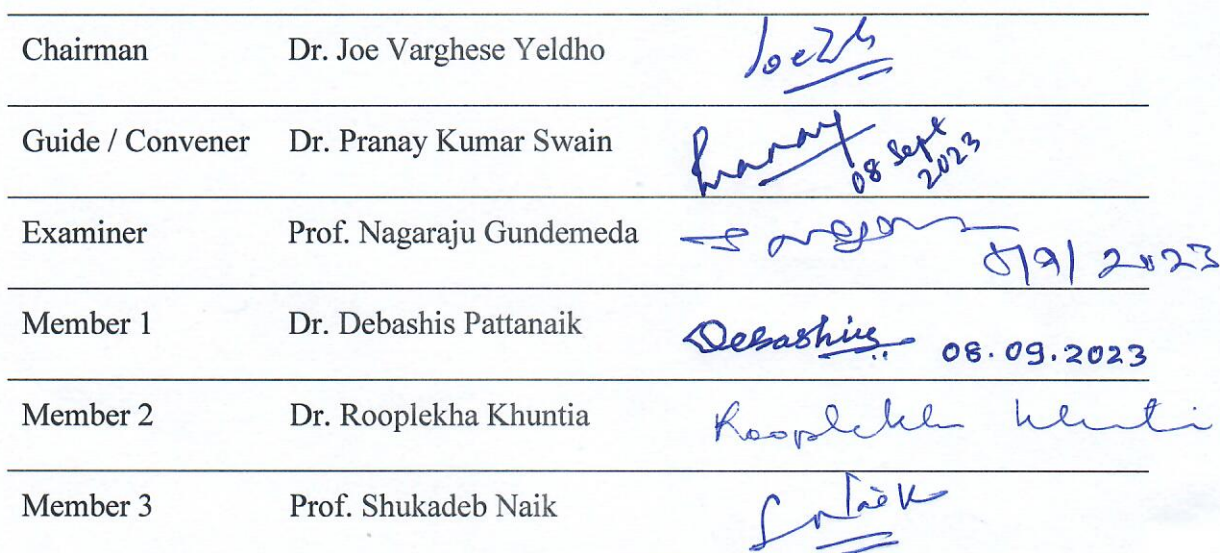 Chairman Dr. Joe Varghese Yeldho
Guide / Convener Dr. Pranay Kumar Swain Pranay 08 Sept 2023
Examiner Prof. Nagaraju Gundemeda 8/9/2023
Member 1 Dr. Debashis Pattanaik Debashis 08.09.2023
Member 2 Dr. Rooplekha Khuntia Rooplekha Khuntia
Member 3 Prof. Shukadeb Naik